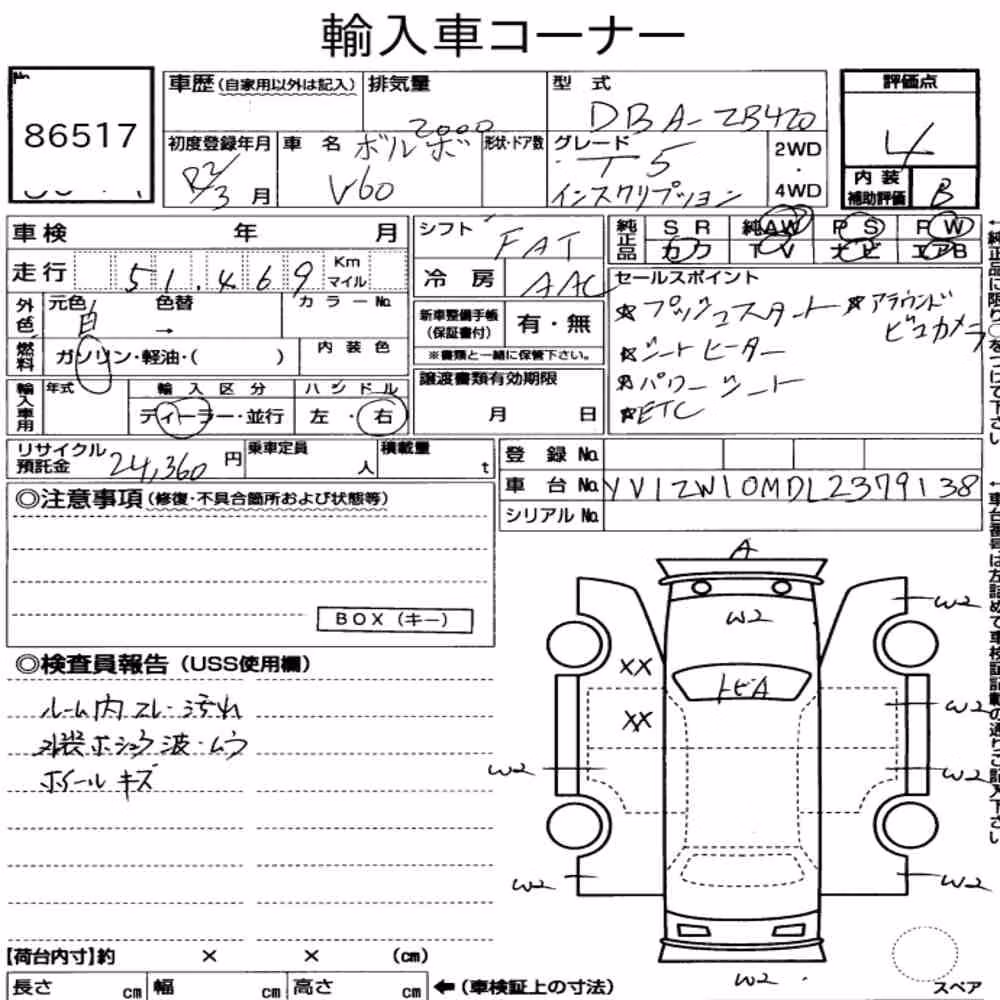 輸入車コーナー
No.
86517
車歴 (自家用以外は記入)
排気量
2000
型 式
DBA-ZB420
評価点
4
初度登録年月
R2/3 月
車 名
ボルボ
V60
形状・ドア数
グレード
T5
インスクリプション
2WD
・
4WD
内 装
補助評価
B
車検 年 月
走行 51.469 Km マイル
シフト
FAT
冷 房
AAC
純正品
S R 純AW P S P W
カワ T V ナビ エアB
セールスポイント
☆プッシュスタート ☆アラウンド
ビュカメラ
☆シートヒーター
☆パワーシート
☆ETC
←純正品に限り○をつけて下さい
外色
元色 白
色替
→
カラーNo.
燃料
ガソリン・軽油・( )
内 装 色
新車整備手帳
(保証書付)
有・無
※書類と一緒に保管下さい。
輸入車用
年式
輸 入 区 分
ディーラー・並行
ハ ン ド ル
左 ・ 右
譲渡書類有効期限
月 日
リサイクル
預託金
24,360 円
乗車定員
人
積載量
t
登 録 No.
車 台 No. YV1ZW10MDL2379138
シリアル No.
←車台番号は左詰めで車検証記載の通りご記入下さい
◎注意事項 (修復・不具合箇所および状態等)
BOX (キー)
◎検査員報告 (USS使用欄)
ルーム内スレ・汚れ
外装ホショウ波・ムラ
ホイールキズ
A
W2
W2
XX
トビA
XX
W2
W2
W2
W2
W2
W2
スペア
【荷台内寸】約 × × (cm)
長さ cm 幅 cm 高さ cm
←(車検証上の寸法)